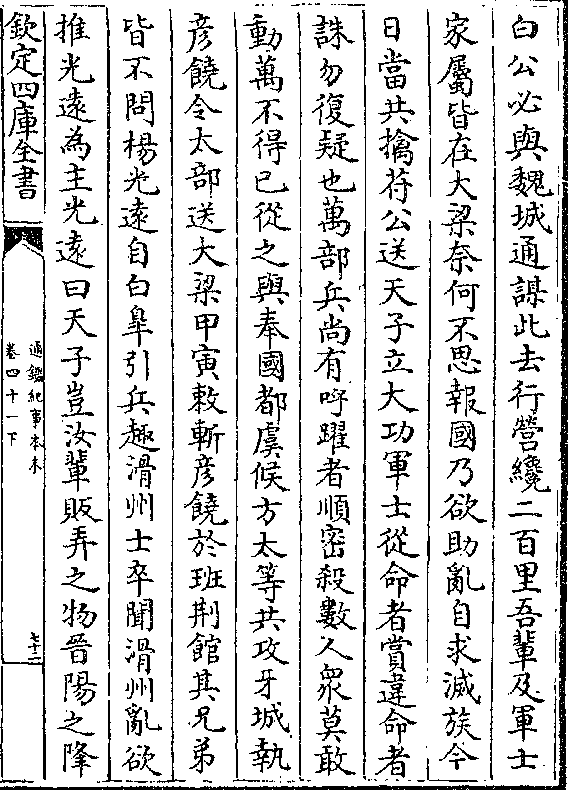 白公必與魏城通謀此去行營纔二百里吾輩及軍士
家屬皆在大梁奈何不思報國乃欲助亂自求滅族今
日當共擒苻公送天子立大功軍士從命者賞違命者
誅勿復疑也萬部兵尚有呼躍者順密殺數人衆莫敢
動萬不得已從之與奉國都虞候方太等共攻牙城執
彦饒令太部送大梁甲寅敕斬彦饒於班荆館其兄弟
皆不問楊光遠自白臯引兵趣滑州士卒聞滑州亂欲
推光遠為主光遠曰天子豈汝輩販弄之物晉陽之降
欽定四庫全書
通鑑紀事本末
卷四十一下
七十二